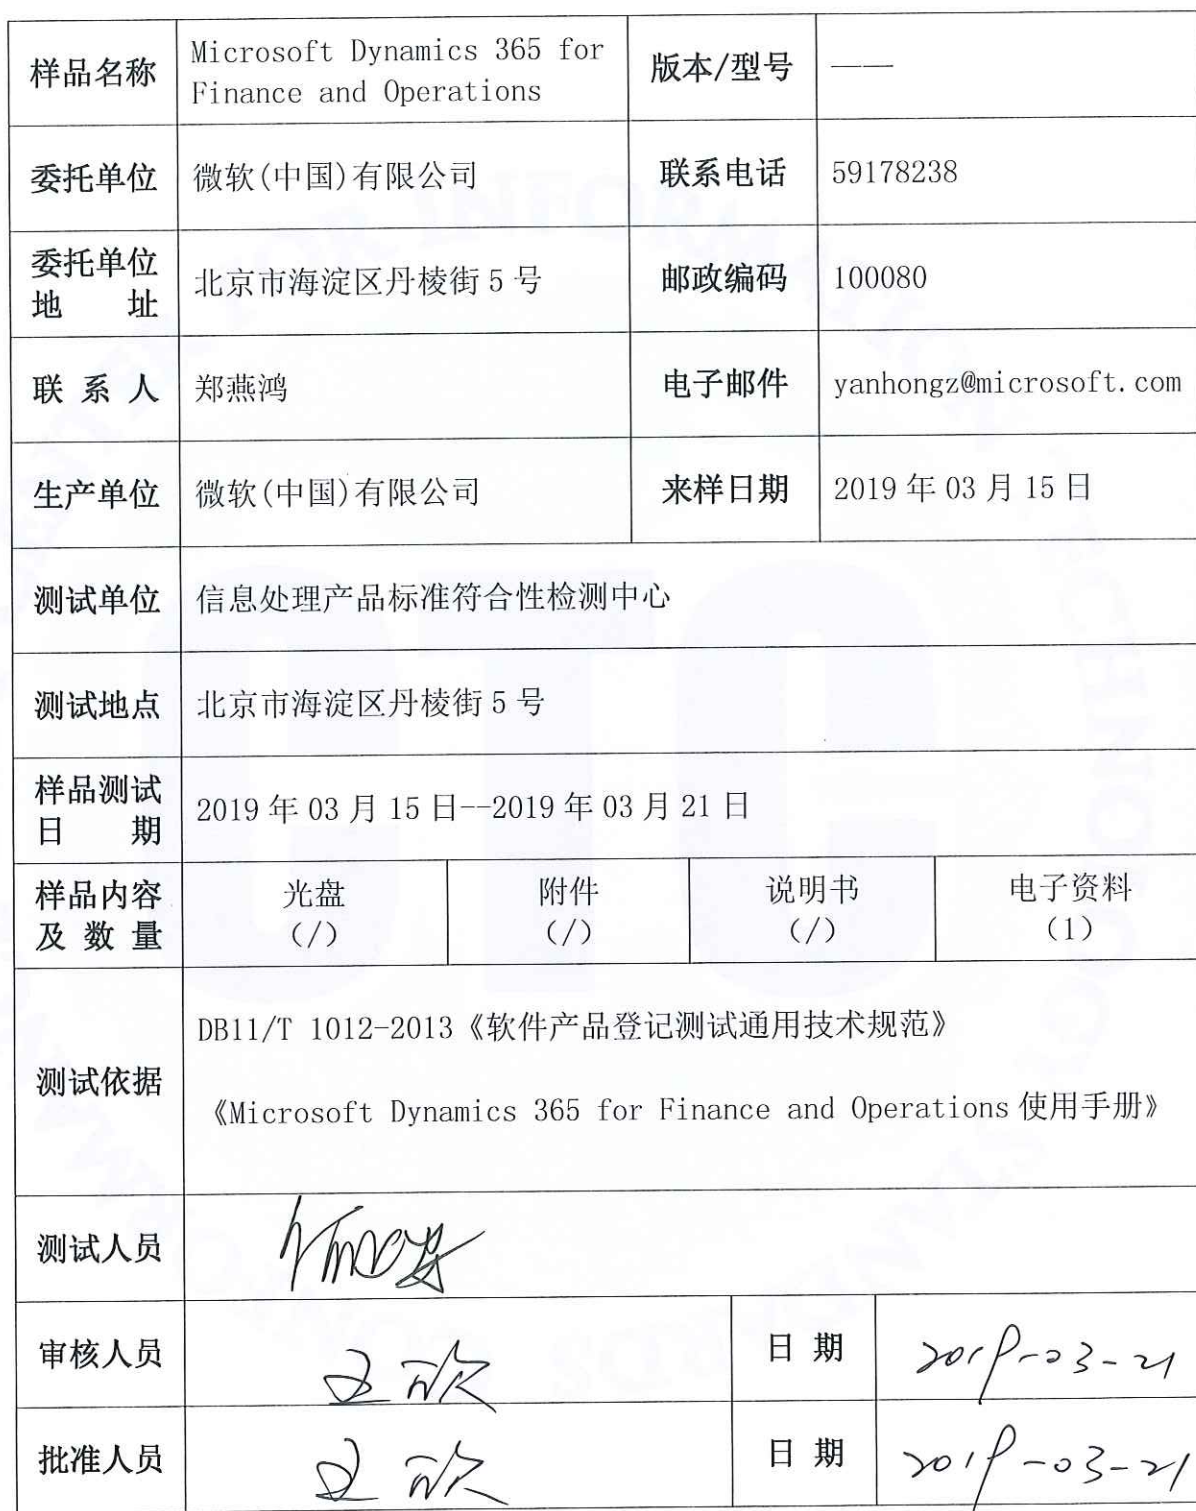 样品名称
Microsoft Dynamics 365 for
Finance and Operations
版本/型号
——
委托单位
微软(中国)有限公司
联系电话
59178238
委托单位
地 址
北京市海淀区丹棱街 5 号
邮政编码
100080
联 系 人
郑燕鸿
电子邮件
yanhongz@microsoft.com
生产单位
微软(中国)有限公司
来样日期
2019 年 03 月 15 日
测试单位
信息处理产品标准符合性检测中心
测试地点
北京市海淀区丹棱街 5 号
样品测试
日 期
2019 年 03 月 15 日--2019 年 03 月 21 日
样品内容
及 数 量
光盘
(/)
附件
(/)
说明书
(/)
电子资料
(1)
测试依据
DB11/T 1012-2013《软件产品登记测试通用技术规范》
《Microsoft Dynamics 365 for Finance and Operations 使用手册》
测试人员
审核人员
王欣
日 期
2019-03-21
批准人员
王欣
日 期
2019-03-21